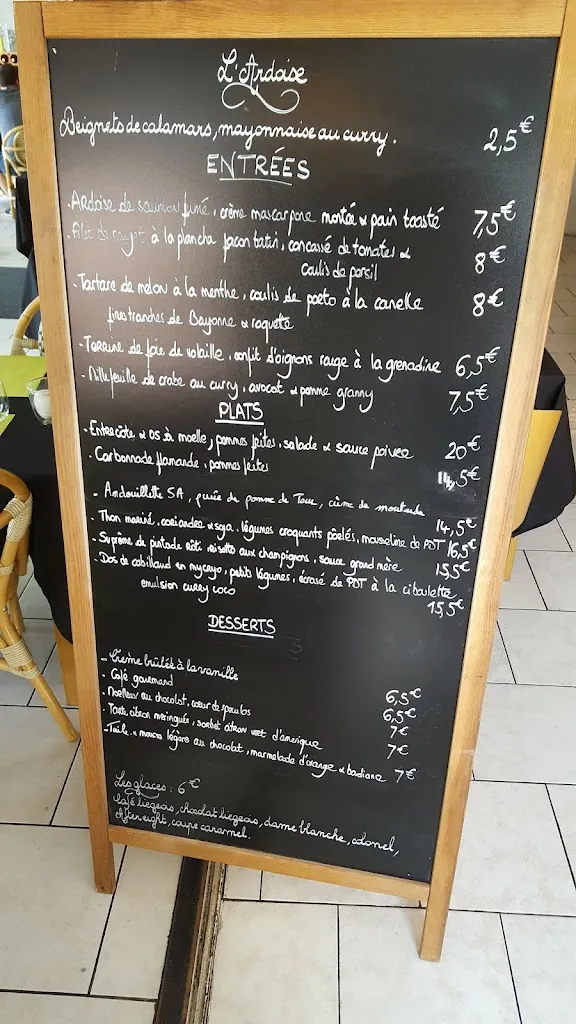 L'Ardoise
Beignets de calamars, mayonnaise au curry. 2,5€
ENTRÉES
- Ardoise de saumon fumé, crème mascarpone montée & pain toasté 7,5€
- Filet de rouget à la plancha façon tatin, concassé de tomates & 8€
coulis de persil
- Tartare de melon à la menthe, coulis de porto à la canelle 8€
fines tranches de Bayonne & roquette
- Terrine de foie de volaille, confit d'oignons rouge à la grenadine 6,5€
- Millefeuille de crabe au curry, avocat & pomme granny 7,5€
PLATS
- Entrecôte & os à moelle, pommes frites, salade & sauce poivre 20€
- Carbonnade flamande, pommes frites 14,5€
- Andouillette 5A, purée de pomme de Terre, crème de moutarde 14,5€
- Thon mariné, coriandre & soja, légumes croquants poêlés, mousseline de PDT 16,5€
- Suprême de pintade rôti, risotto aux champignons, sauce grand mère 15,5€
- Dos de cabillaud en mycryo, petits légumes, écrasé de PDT à la ciboulette
emulsion curry coco 15,5€
DESSERTS
- Crème brûlée à la vanille 6,5€
- Café gourmand 6,5€
- Moelleux au chocolat, coeur de spéculos 7€
- Tarte citron meringuée, sorbet citron vert d'amérique 7€
- Tuile & mousse légère au chocolat, marmelade d'orange & badiane 7€
Les glaces : 6€
Café liégeois, chocolat liégeois, dame blanche, colonel,
After eight, coupe caramel.